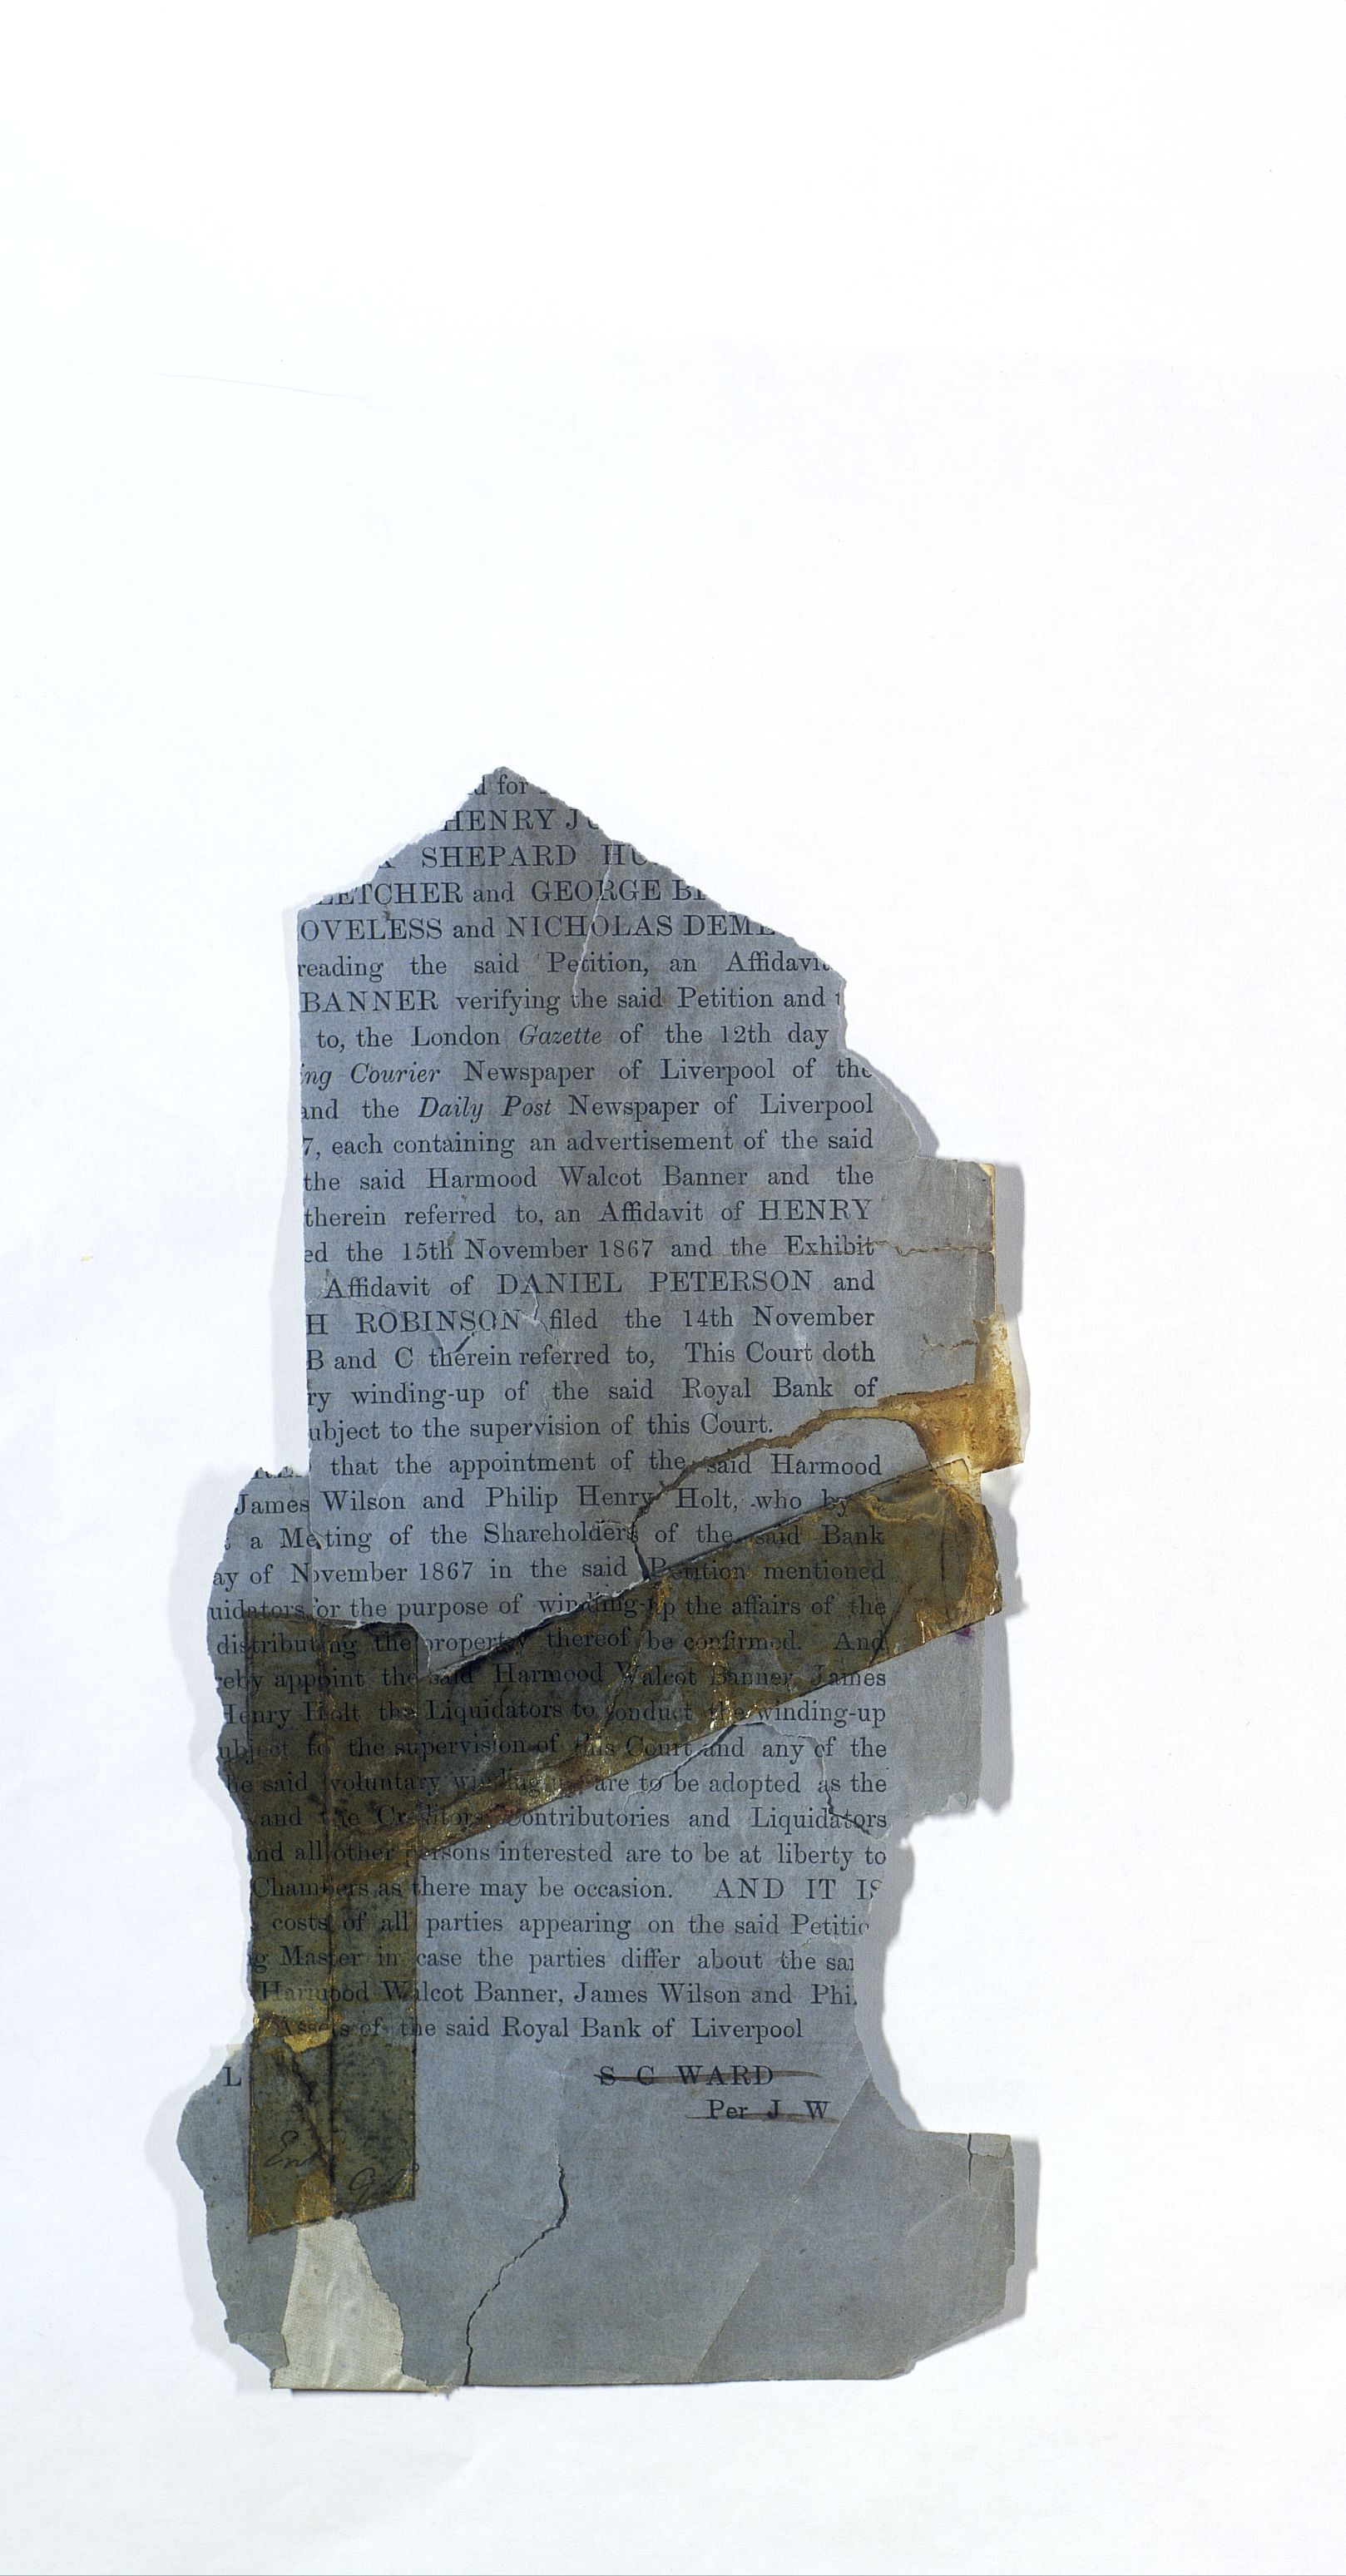 for
HENRY
SHEPARD
ETCHER and GEORGE
OVELESS and NICHOLAS DEME
reading the said Petition, an Affidavit
BANNER verifying the said Petition and
to, the London Gazette of the 12th day
ing Courier Newspaper of Liverpool of the
and the Daily Post Newspaper of Liverpool
7, each containing an advertisement of the said
the said Harmood Walcot Banner and the
therein referred to, an Affidavit of HENRY
ed the 15th November 1867 and the Exhibit
Affidavit of DANIEL PETERSON and
H ROBINSON filed the 14th November
B and C therein referred to, This Court doth
ry winding-up of the said Royal Bank of
ubject to the supervision of this Court.
that the appointment of the said Harmood
James Wilson and Philip Henry Holt, who by
a Meeting of the Shareholders of the said Bank
ay of November 1867 in the said Petition mentioned
uidators for the purpose of winding-up the affairs of the
distributing the property thereof be confirmed. And
reby appoint the said Harmood Walcot Banner James
Henry Holt the Liquidators to conduct the winding-up
ubject to the supervision of this Court and any of the
he said voluntary winding up are to be adopted as the
and the Creditors Contributories and Liquidators
and all other persons interested are to be at liberty to
Chambers as there may be occasion. AND IT IS
costs of all parties appearing on the said Petitio
g Master in case the parties differ about the sa
Harmood Walcot Banner, James Wilson and Phi
Assets of the said Royal Bank of Liverpool
L
S C WARD
Per J W